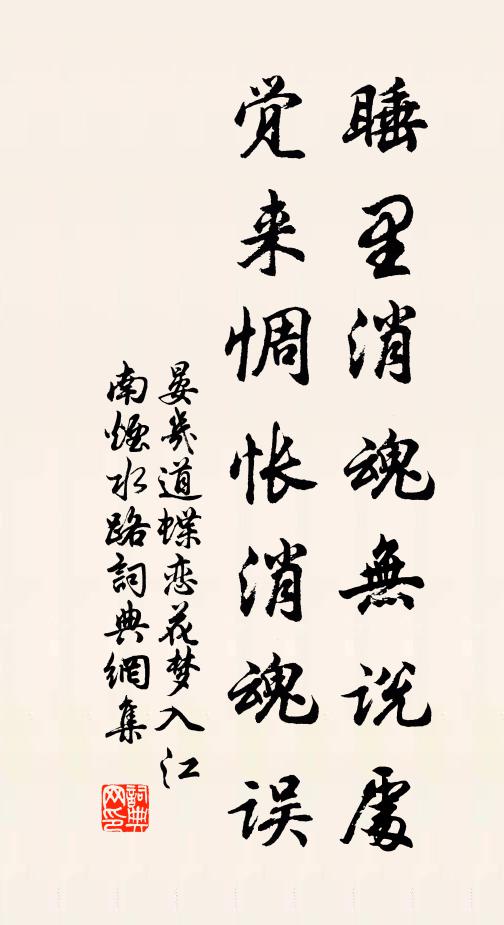 睡里消魂無说處
觉来惆怅消魂误
晏幾道蝶恋花梦入江
南煙水路詞典網集
詞典网印